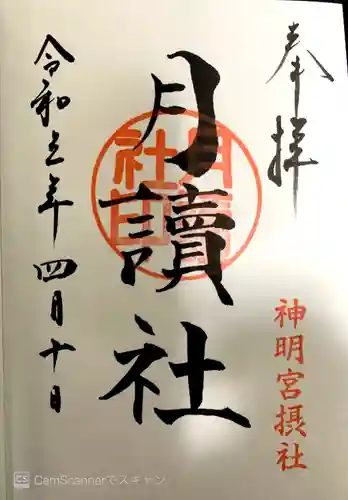 奉拝
月讀社
月讀社印
神明宮摂社
令和五年四月十日
CS CamScannerでスキャン